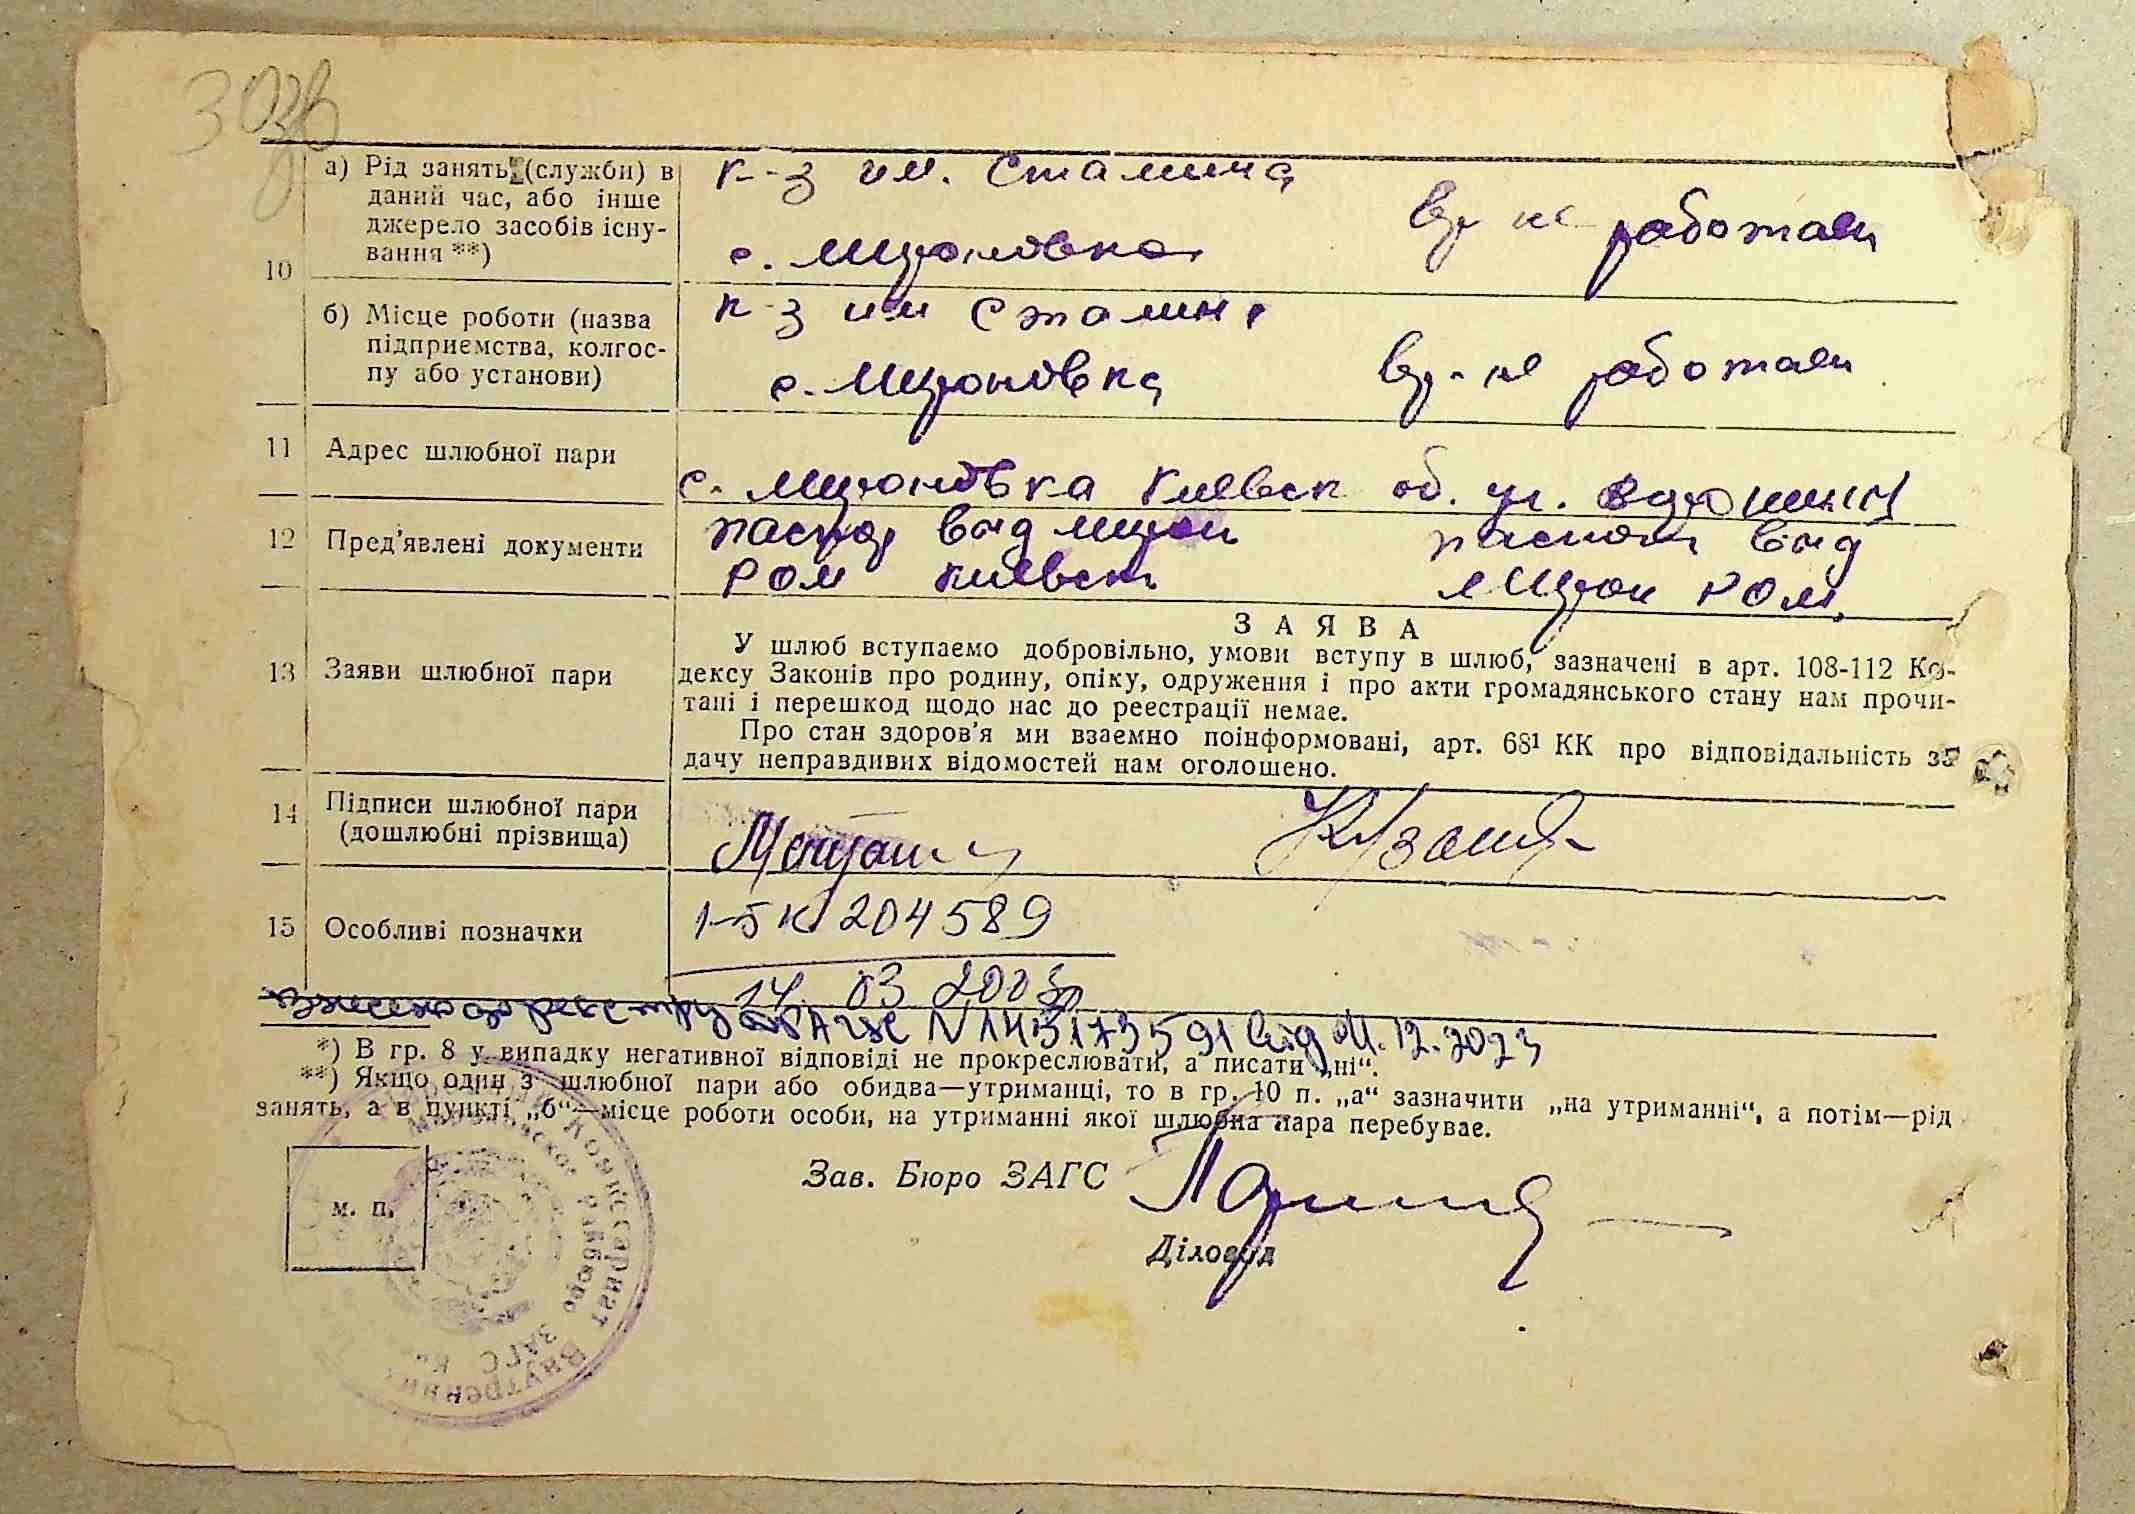 303
10
а) Рід занять (службн) в
даний час, або інше
джерело засобів існу-
вання **)
к-з им. Сталина
с. Мироновка
не работали
б) Місце роботи (назва
підприємства, колгос-
пу або установи)
к-з им Сталина
с. Мироновка
не работали
11 Адрес шлюбної пари
с. Мироновка Киевск об. ул.
12 Пред'явлені документи
паспор выд Мирон
РОМ Киевск
паспорт выд
Мирон РОМ.
13 Заяви шлюбної пари
ЗАЯВА
У шлюб вступаємо добровільно, умови вступу в шлюб, зазначені в арт. 108-112 Ко-
дексу Законів про родину, опіку, одруження і про акти громадянського стану нам прочи-
тані і перешкод щодо нас до реєстрації немає.
Про стан здоров'я ми взаємно поінформовані, арт. 68¹ КК про відповідальність за
дачу неправдивих відомостей нам оголошено.
14 Підписи шлюбної пари
(дошлюбні прізвища)
15 Особливі позначки
1-БК 204589
14. 03 2003
внесено до реєстру ДРАЦС N 143173591 від 11.12.2023
*) В гр. 8 у випадку негативної відповіді не прокреслювати, а писати „ні“.
**) Якщо один з шлюбної пари або обидва—утриманці, то в гр. 10 п. „а“ зазначити „на утриманні“, а потім—рід
занять, а в пункті „б“—місце роботи особи, на утриманні якої шлюбна пара перебуває.
м. п.
Зав. Бюро ЗАГС
Діловод
Комиссариат Внутренних
Райбюро ЗАГС